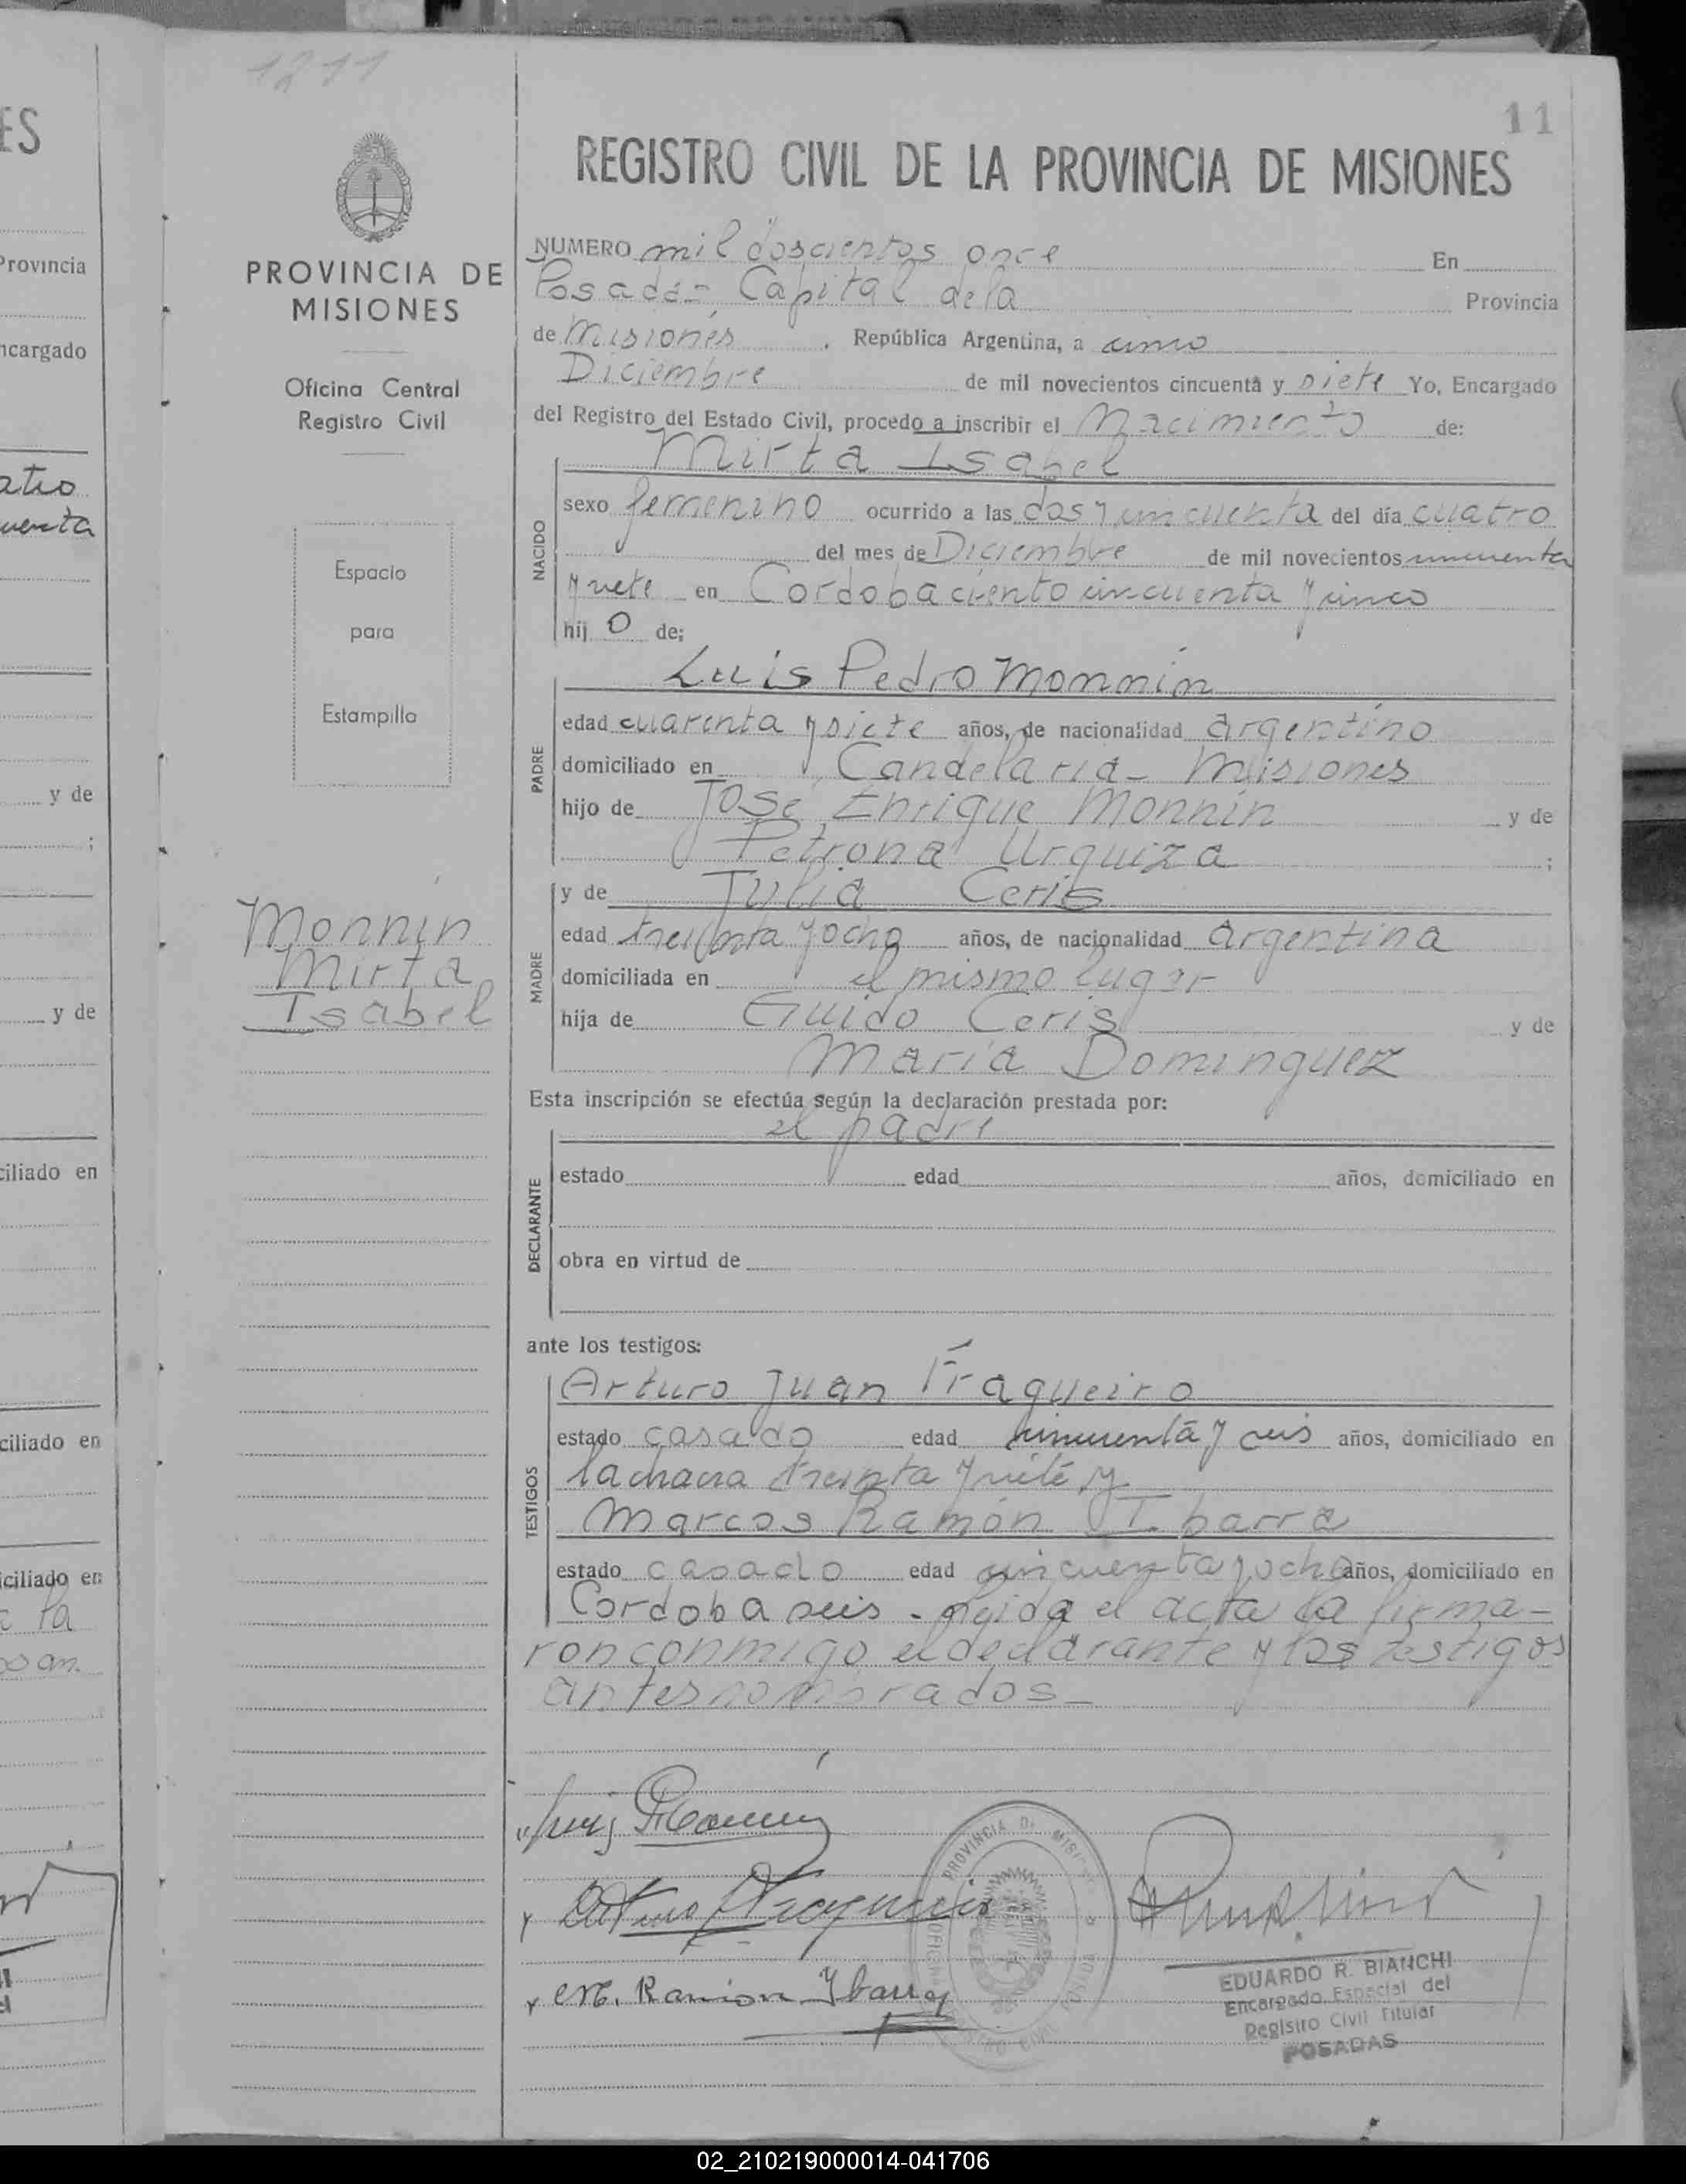 1211
11
REGISTRO CIVIL DE LA PROVINCIA DE MISIONES
PROVINCIA DE
MISIONES
Oficina Central
Registro Civil
Espacio
para
Estampilla
Monnin
Mirta
Isabel
NUMERO mil doscientos once En
Posadas Capital de la Provincia
de Misiones, República Argentina, a cinco
Diciembre de mil novecientos cincuenta y siete Yo, Encargado
del Registro del Estado Civil, procedo a inscribir el Nacimiento de:
Mirta Isabel
NACIDO
sexo femenino ocurrido a las dos y cincuenta del día cuatro
del mes de Diciembre de mil novecientos cincuenta
y siete en Cordoba ciento cincuenta y cinco
hij o de;
Luis Pedro Monnin
PADRE
edad cuarenta y siete años, de nacionalidad argentino
domiciliado en Candelaria - Misiones
hijo de José Enrique Monnin y de
Petrona Urquiza ;
y de Julia Ceris
MADRE
edad treinta y ocho años, de nacionalidad argentina
domiciliada en el mismo lugar
hija de Guido Ceris y de
María Dominguez
Esta inscripción se efectúa según la declaración prestada por:
el padre
DECLARANTE
estado edad años, domiciliado en
obra en virtud de
ante los testigos:
Arturo Juan Fraqueiro
TESTIGOS
estado casado edad cincuenta y seis años, domiciliado en
la chacra treinta y siete y
Marcos Ramón Ibarra
estado casado edad cincuenta y ocho años, domiciliado en
Cordoba seis - leida el acta la firma-
ron conmigo el declarante y los testigos
antes nombrados -
M. Ramon Ybarra
EDUARDO R. BIANCHI
Encargado Especial del
Registro Civil Titular
POSADAS
ES
Provincia
ncargado
y de
;
y de
ciliado en
ciliado en
iciliado en
02_210219000014-041706